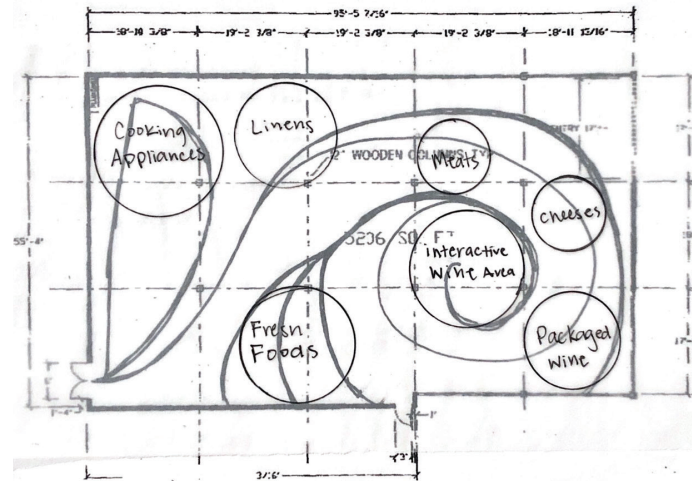 95'-5 7/16"
18'-10 3/8"
19'-2 3/8"
19'-2 3/8"
19'-2 3/8"
18'-11 13/16"
Cooking
Appliances
Linens
12" WOODEN COLUMNS TYP
Meats
Cheeses
5236 SQ. FT
Interactive
Wine Area
55'-4"
Fresh
Foods
Packaged
Wine
1'-4"
1'
3'
3/16"